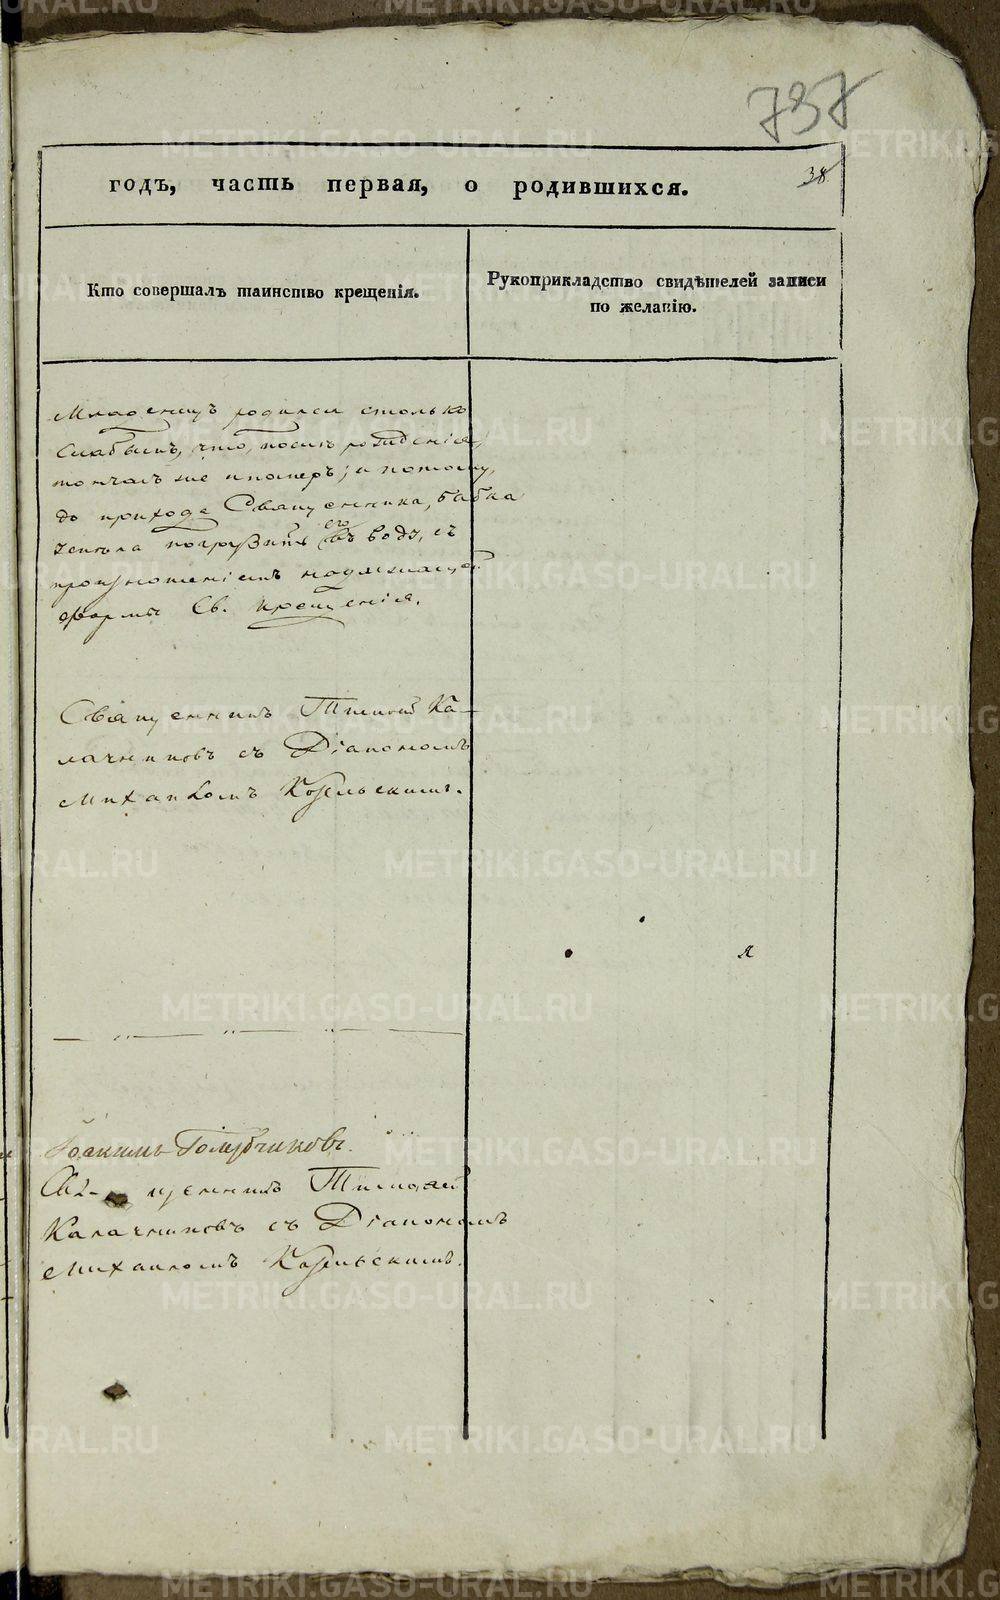 737
38
годъ, часть первая, о родившихся.
Кто совершалъ таинство крещенія.
Рукоприкладство свидѣтелей записи
по желанію.
Младенецъ родился столько
слабымъ, что, послѣ рожденія,
тотчасъ же и померъ; и потому,
до прихода Священника, бабка
успѣла погрузить его въ воду, съ
произношеніемъ надлежащей
формы Св. Крещенія.
Священникъ Тимоѳей Ка-
лачниковъ съ Діакономъ
Михаиломъ Козельскимъ.
Іоакимъ Голубчиковъ.
Священникъ Тимоѳей
Калачниковъ съ Діакономъ
Михаиломъ Козельскимъ.
METRIKI.GASO-URAL.RU